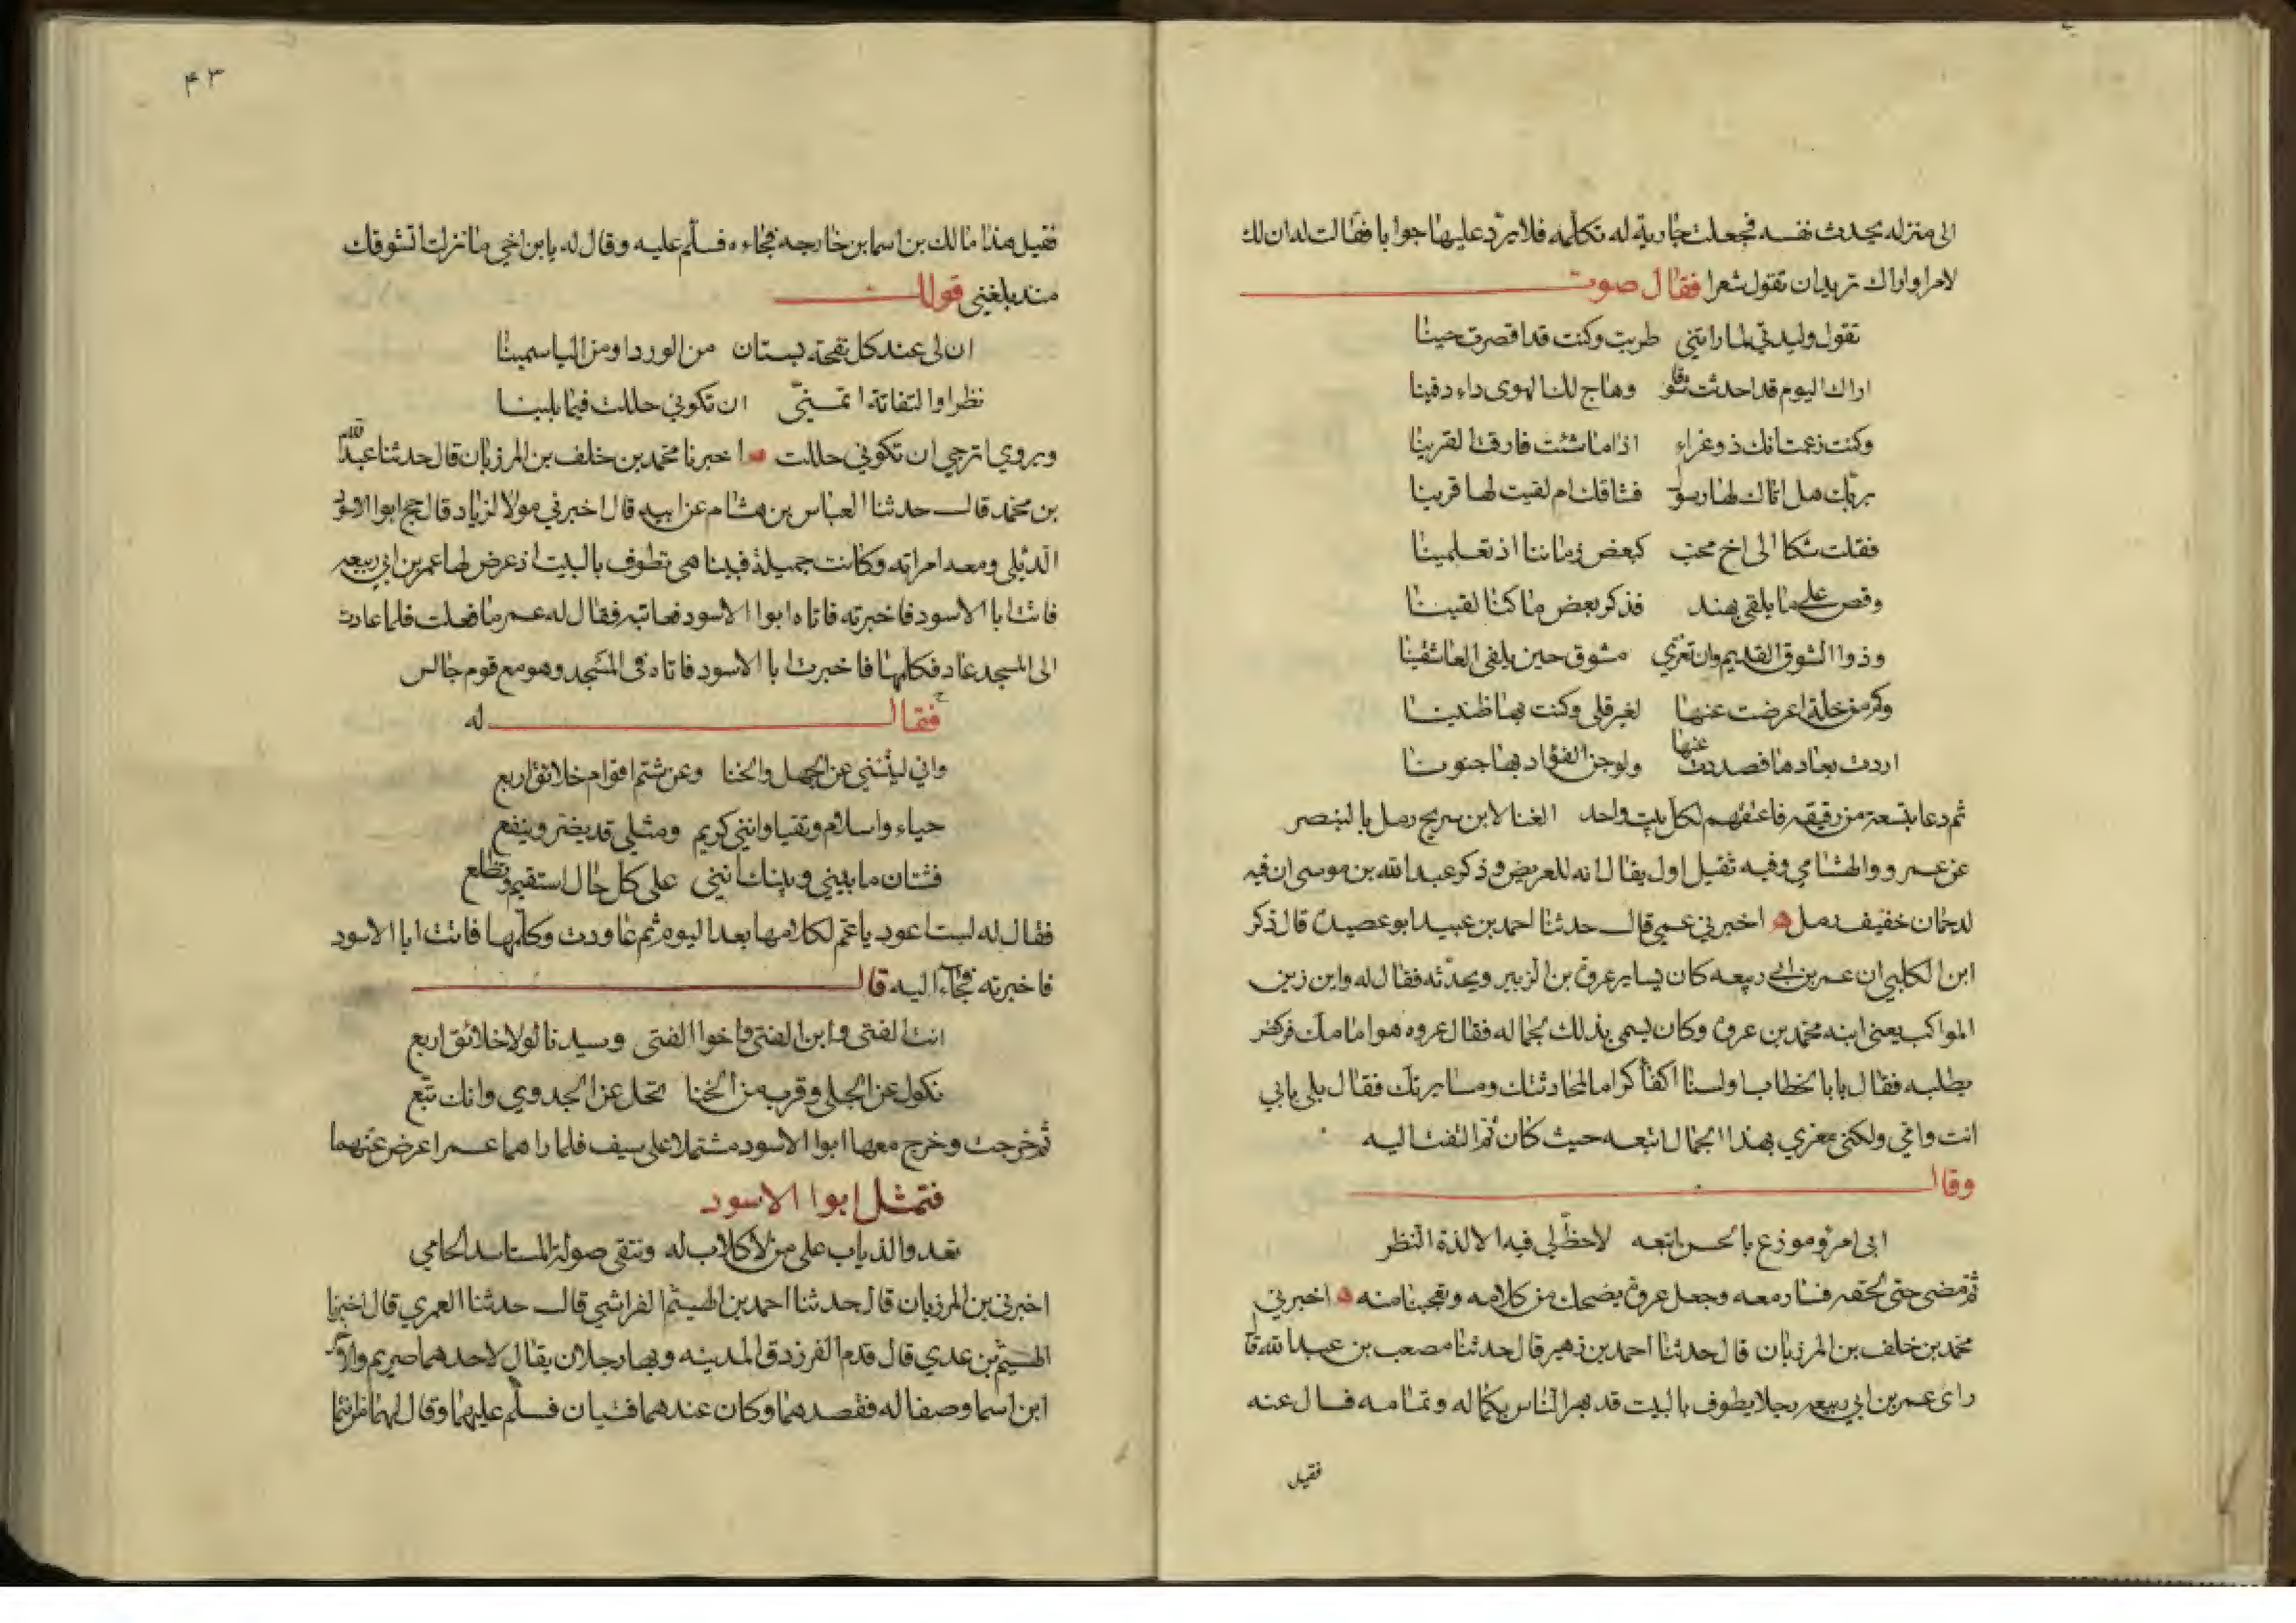 الى منزله يحدث نفسه فجعلت جارية له تكلمه فلا يردّ عليها جوابا فقالت له ان لك
لامرا واراك تريد ان تقول شعرا فقال صوت
تقول وليدتي لما راتني طربت وكنت قد اقصرت حينا
اراك اليوم قد احدثت شوقا وهاج لك الهوى داء دفينا
وكنت زعمت انك ذو عزاء اذا ما شئت فارقت القرينا
بربك هل اتاك لها رسول فشاقك ام لقيت لها قرينا
فقلت شكا الى اخ محب كبعض زماننا اذ تعلمينا
وقص على ما يلقى بهند فذكر بعض ما كنا لقينا
وذوا الشوق القديم وان تعزي مشوق حين يلقى العاشقينا
وكم من خلة اعرضت عنها لغير قلى وكنت بها ظنينا
اردت بعادها فصددت عنها ولو جن الفؤاد بها جنونا
ثم دعا بتسعة من رقيقه فاعتقهم لكل بيت واحد الغنا لابن سريج رمل بالبنصر
عن عمرو والهشامي وفيه ثقيل اول يقال انه للغريض وذكر عبد الله بن موسى ان فيه
لدحمان خفيف رمل اخبرني عمي قال حدثنا احمد بن عبيد ابو عصيدة قال ذكر
ابن الكلبي ان عمر بن ابي ربيعه كان يساير عروة بن الزبير ويحدّثه فقال له واين زين
المواكب يعني ابنه محمد بن عروة وكان يسمى بذلك لجماله فقال عروه هو امامك فركض
يطلبه فقال يابا الخطاب اولسنا اكفأ كراما لمحادثتك ومسايرتك فقال بلى بابي
انت وامي ولكني مغزي بهذا الجمال اتبعه حيث كان ثم التفت اليه
وقال
اني امرؤ موزع بالحسن اتبعه لا حظّ لي فيه الا لذة النظر
ثم مضى حتى لحقه فسار معه وجعل عروة يضحك من كلامه وتعجبا منه اخبرني
محمد بن خلف بن المرزبان قال حدثنا احمد بن زهير قال حدثنا مصعب بن عبد الله قا
راى عمر بن ابي ربيعه رجلا يطوف بالبيت قد بهر الناس بكماله وتمامه فسال عنه
فقيل
٤٣
فقيل هذا مالك بن اسما بن خارجه فجاءه فسلم عليه وقال له يابن اخي ما زلت اتشوقك
منذ بلغني قولك
ان لى عند كل نفحة بستان من الورد او من الياسمينا
نظرا والتفاتة اتمنىّ ان تكوني حللت فيما يلينا
ويروي اترجي ان تكوني حللت اخبرنا محمد بن خلف بن المرزبان قال حدثنا عبد الله
بن محمد قال حدثنا العباس بن هشام عن ابيه قال اخبرني مولا لزياد قال حج ابوا الاسود
الدئلي ومعه امراته وكانت جميلة فبينا هي تطوف بالبيت اذ عرض لها عمر بن ابي ربيعه
فاتت ابا الاسود فاخبرته فاتاه ابوا الاسود فعاتبه فقال له عمر ما فعلت فلما عادت
الى المسجد عاد فكلمها فاخبرت ابا الاسود فاتاه في المسجد وهو مع قوم جالس
فقال له
واني ليثنيني عن الجهل والخنا وعن شتم اقوام خلائق اربع
حياء واسلام وتقيا وانني كريم ومثلي قد يضر وينفع
فشتان ما بيني وبينك انني على كل حال استقيم وتظلع
فقال له لست اعود يا عم لكلامها بعد اليوم ثم عاودت وكلمها فاتت ابا الاسود
فاخبرته فجاءا اليه قال
انت الفتى وابن الفتى واخوا الفتى وسيدنا لولا خلائق اربع
نكول عن الجلى وقرب من الخنا وبخل عن الجدوي وانك تبّع
ثم خرجت وخرج معها ابوا الاسود مشتملا على سيف فلما راهما عمر اعرض عنهما
فتمثل ابوا الاسود
تعدوا الذياب على من لا كلاب له وتتقى صولة المستاسد الحامي
اخبرني بن المرزبان قال حدثنا احمد بن الهيثم الفراشي قال حدثنا العمري قال اخبرنا
الهيثم بن عدي قال قدم الفرزدق المدينه وبها رجلان يقال لاحدهما صريم والاخر
ابن اسما وصفا له فقصدهما وكان عندهما قيان فسلم عليهما وقال لهما